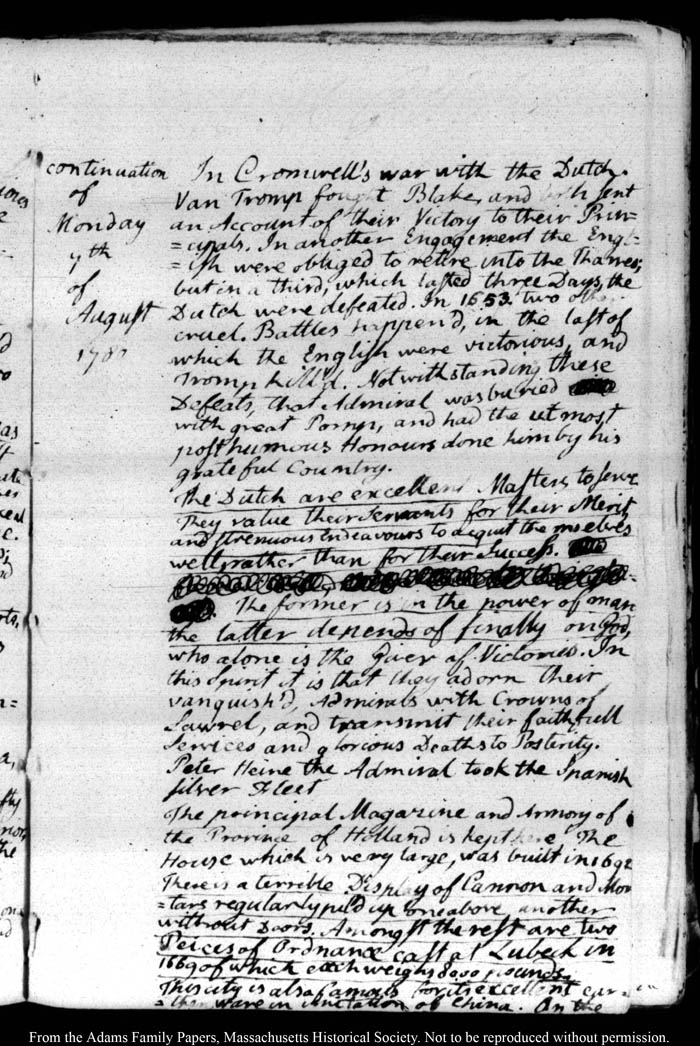 continuation
of
Monday
7th
of
August
1780
In Cromwell's war with the Dutch.
Van Tromp fought Blake, and both sent
an Account of their Victory to their Prin=
=cipals. In another Engagement the Engl=
=ish were obliged to retire into the Thames;
but in a third, which lasted three Days, the
Dutch were defeated. In 1653. two other
cruel. Battles happen'd, in the last of
which the English were victorious, and
Tromp kill'd. Notwithstanding these
Defeats, that Admiral was buried
with great Pomp, and had the utmost
posthumous Honours done him by his
grateful Country.
The Dutch are excellent Masters to serve
They value their Servants for their Merit
and strenuous Endeavours to acquit themselves
well, rather than for their Success.
The former is in the power of man
the latter depends of finally on God,
who alone is the Giver of Victories. In
this Spirit it is that they adorn their
vanquish'd, Admirals with Crowns of
Lawrel, and transmit their faithfull
Services and glorious Deaths to Posterity.
Peter Heine the Admiral took the Spanish
silver Fleet
The principal Magazine and Armory of
the Province of Holland is kept here The
House which is very large, was built in 1692
There is a terrible Display of Cannon and Mor
=tars regularly pil'd up one above another
without Doors. Amongst the rest are two
Peices of Ordnance cast at Lubeck in
1669 of which each weighs 8000 pounds.
This city is also famous for its excellent ear=
=then ware in imitation of China. On the
From the Adams Family Papers, Massachusetts Historical Society. Not to be reproduced without permission.